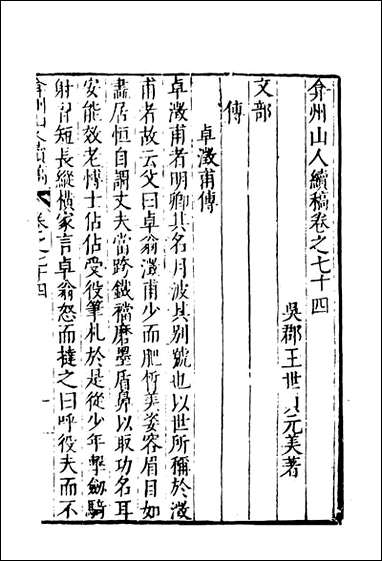 弇州山人續稿卷之七十四
吳郡王世貞元美著
文部
傳
卓澂甫傳
卓澂甫者明卿其名月波其别號也以世所稱於澂
甫者故云父曰卓翁澂甫少而肥皙美姿容眉目如
畫居恒自謂丈夫當跨鐵襠磨墨盾鼻以取功名耳
安能效老博士佔佔受役筆札於是從少年擊劍騎
射習短長縱橫家言卓翁怒而撻之曰呼役夫而不
弇州山人續稿 卷之七十四